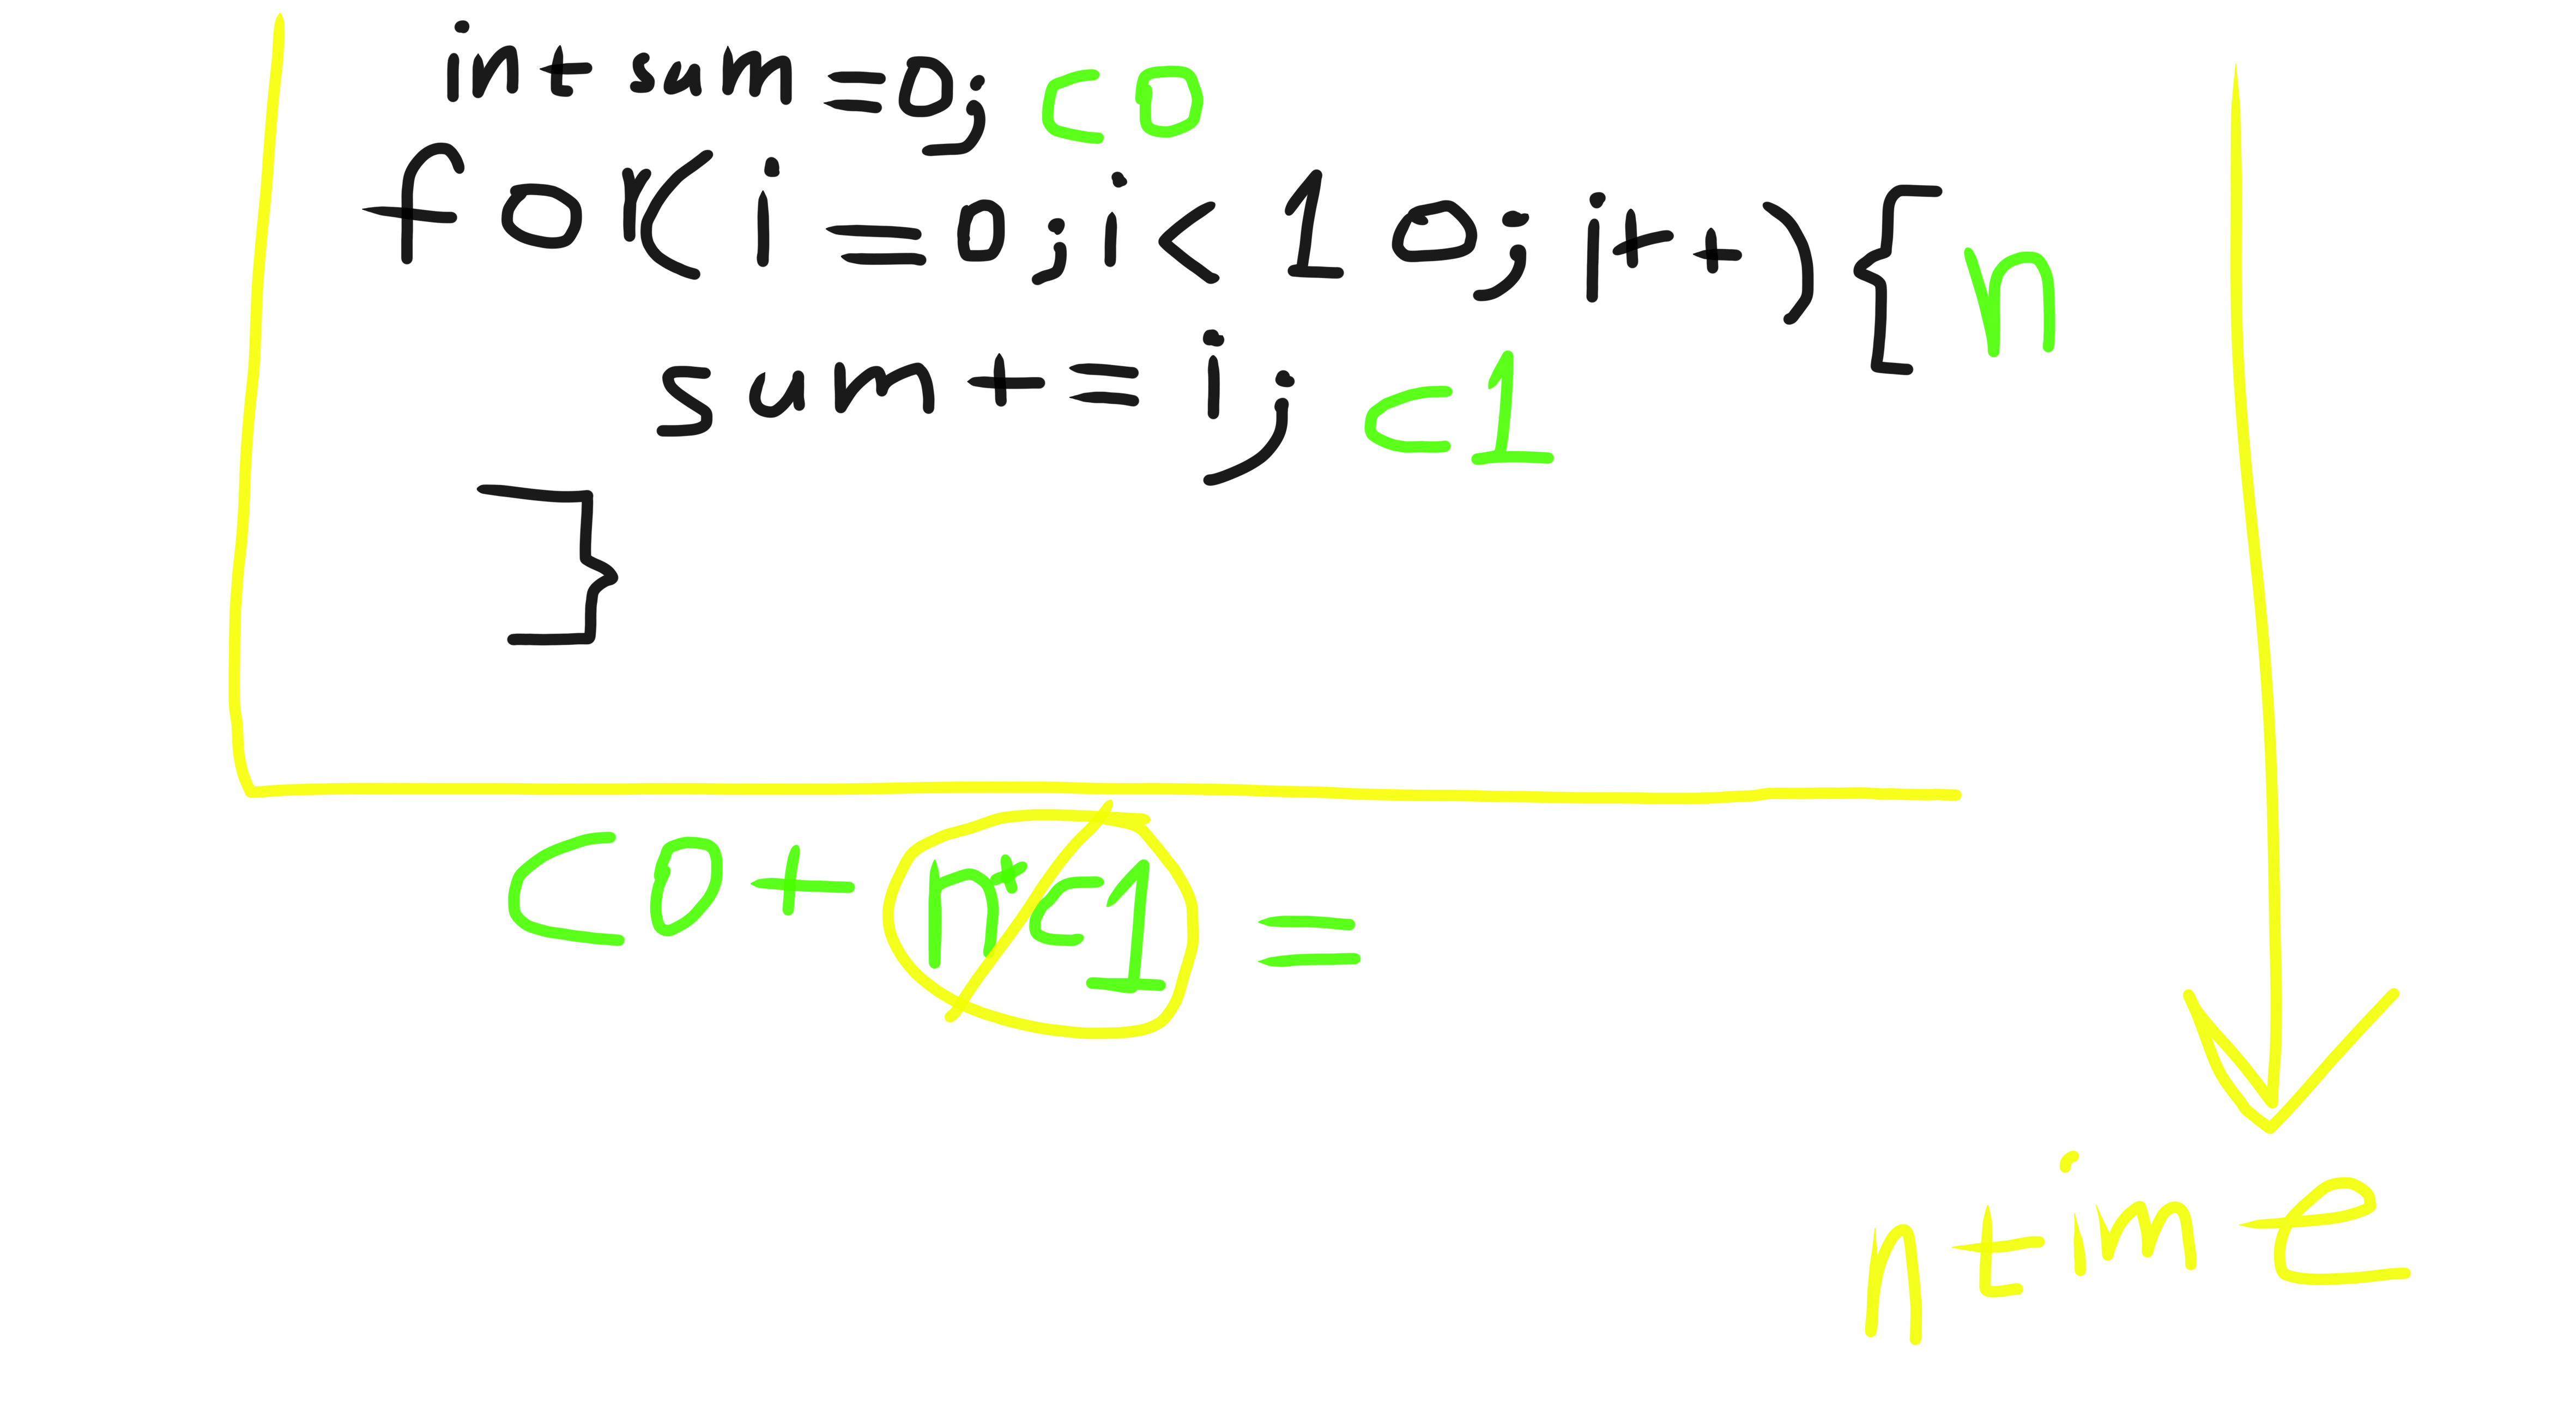 int sum =0; c0
for( i =0; i < 10; i++){ n
sum += i; c1
}
c0 + n*c1 =
n time